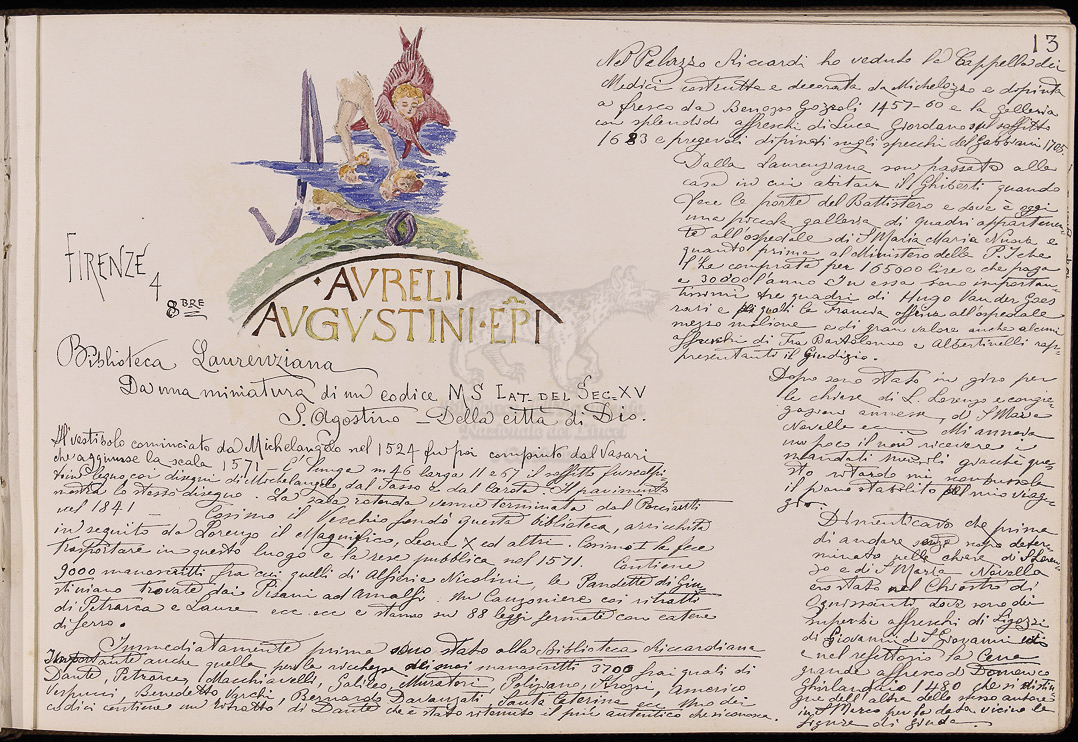 13
FIRENZE
4
8BRE
·AVRELII
AVGVSTINI·EPI
Biblioteca Laurenziana
Da una miniatura di un codice MS LAT. DEL SEC. XV
S. Agostino - Della città di Dio.
Il vestibolo cominciato da Michelangelo nel 1524 fu poi compiuto dal Vasari
che aggiunse la scala 1571 - E' lunga m 46 larga 11 e 57 il soffitto fu scolpi-
to in legno con disegni di Michelangelo, dal Tasso e dal Carota. Il pavimento
mostra lo stesso disegno. La sala rotonda venne terminata dal Poccianti
nel 1841 - Cosimo il Vecchio fondò questa biblioteca, arricchita
in seguito da Lorenzo il Magnifico, Leone X ed altri. Cosimo I la fece
trasportare in questo luogo e la rese pubblica nel 1571. Contiene
9000 manoscritti fra cui quelli di Alfieri e Nicolini, le Pandette di Giu-
stiniano trovate dai Pisani ad Amalfi. Un Canzoniere coi ritratti
di Petrarca e Laura ecc. ecc. e stanno su 88 leggi fermate con catene
di ferro.
Immediatamente prima sono stato alla Biblioteca Riccardiana
Importante anche quella per la ricchezza dei suoi manoscritti 3700 fra i quali di
Dante, Petrarca, Macchiavelli, Galileo, Muratori, Poliziano, Strozzi, Americo
Vespucci, Benedetto Varchi, Bernardo Davanzati, Santa Caterina ecc. Uno dei
codici contiene un ritratto di Dante che è stato ritenuto il più autentico che si conosca.
Nel Palazzo Riccardi ho veduto la Cappella dei
Medici costrutta e decorata da Michelozzo e dipinta
a fresco da Benozzo Gozzoli 1457-60 e la galleria
con splendidi affreschi di Luca Giordano sul soffitto
1683 e pregevoli dipinti sugli specchi del Gabbiani 1705.
Dalla Laurenziana son passato alla
casa in cui abitava il Ghiberti quando
fece le porte del Battistero e dove è oggi
una piccola galleria di quadri appartenen-
te all'ospedale di S. Maria Maria Nuova e
quanto prima al Ministero della P. I. che
l'ha comprata per 165000 lire e che paga
e 30000 l'anno. In essa sono importan-
tissimi tre quadri di Hugo Van der Goes
rari e pei quali la Francia offriva all'ospedale
mezzo milione e di gran valore anche alcuni
affreschi di Fra Bartolomeo e Albertinelli rap-
presentanti il Giudizio.
Dopo sono stato in giro per
le chiese di S. Lorenzo e congre-
gazioni annesse, di S. Maria
Novella ecc. Mi annoia
un poco il non ricevere i
mandati mensili giacchè que-
sto ritardo mi scombussola
il piano stabilito pel mio viag-
gio.
Dimenticavo che prima
di andare senza scopo deter-
minato nelle chiese di S. Loren-
zo e di S. Maria Novella
ero stato nel Chiostro di
Ognissanti dove sono dei
superbi affreschi di Ligozzi
di Giovanni di S. Giovanni
e nel refettorio la Cena
grande affresco di Domenico
Ghirlandaio 1480 che si distin-
gue dall'altra dello stesso autore
in S. Marco per la data vicino la
figura di Giuda.